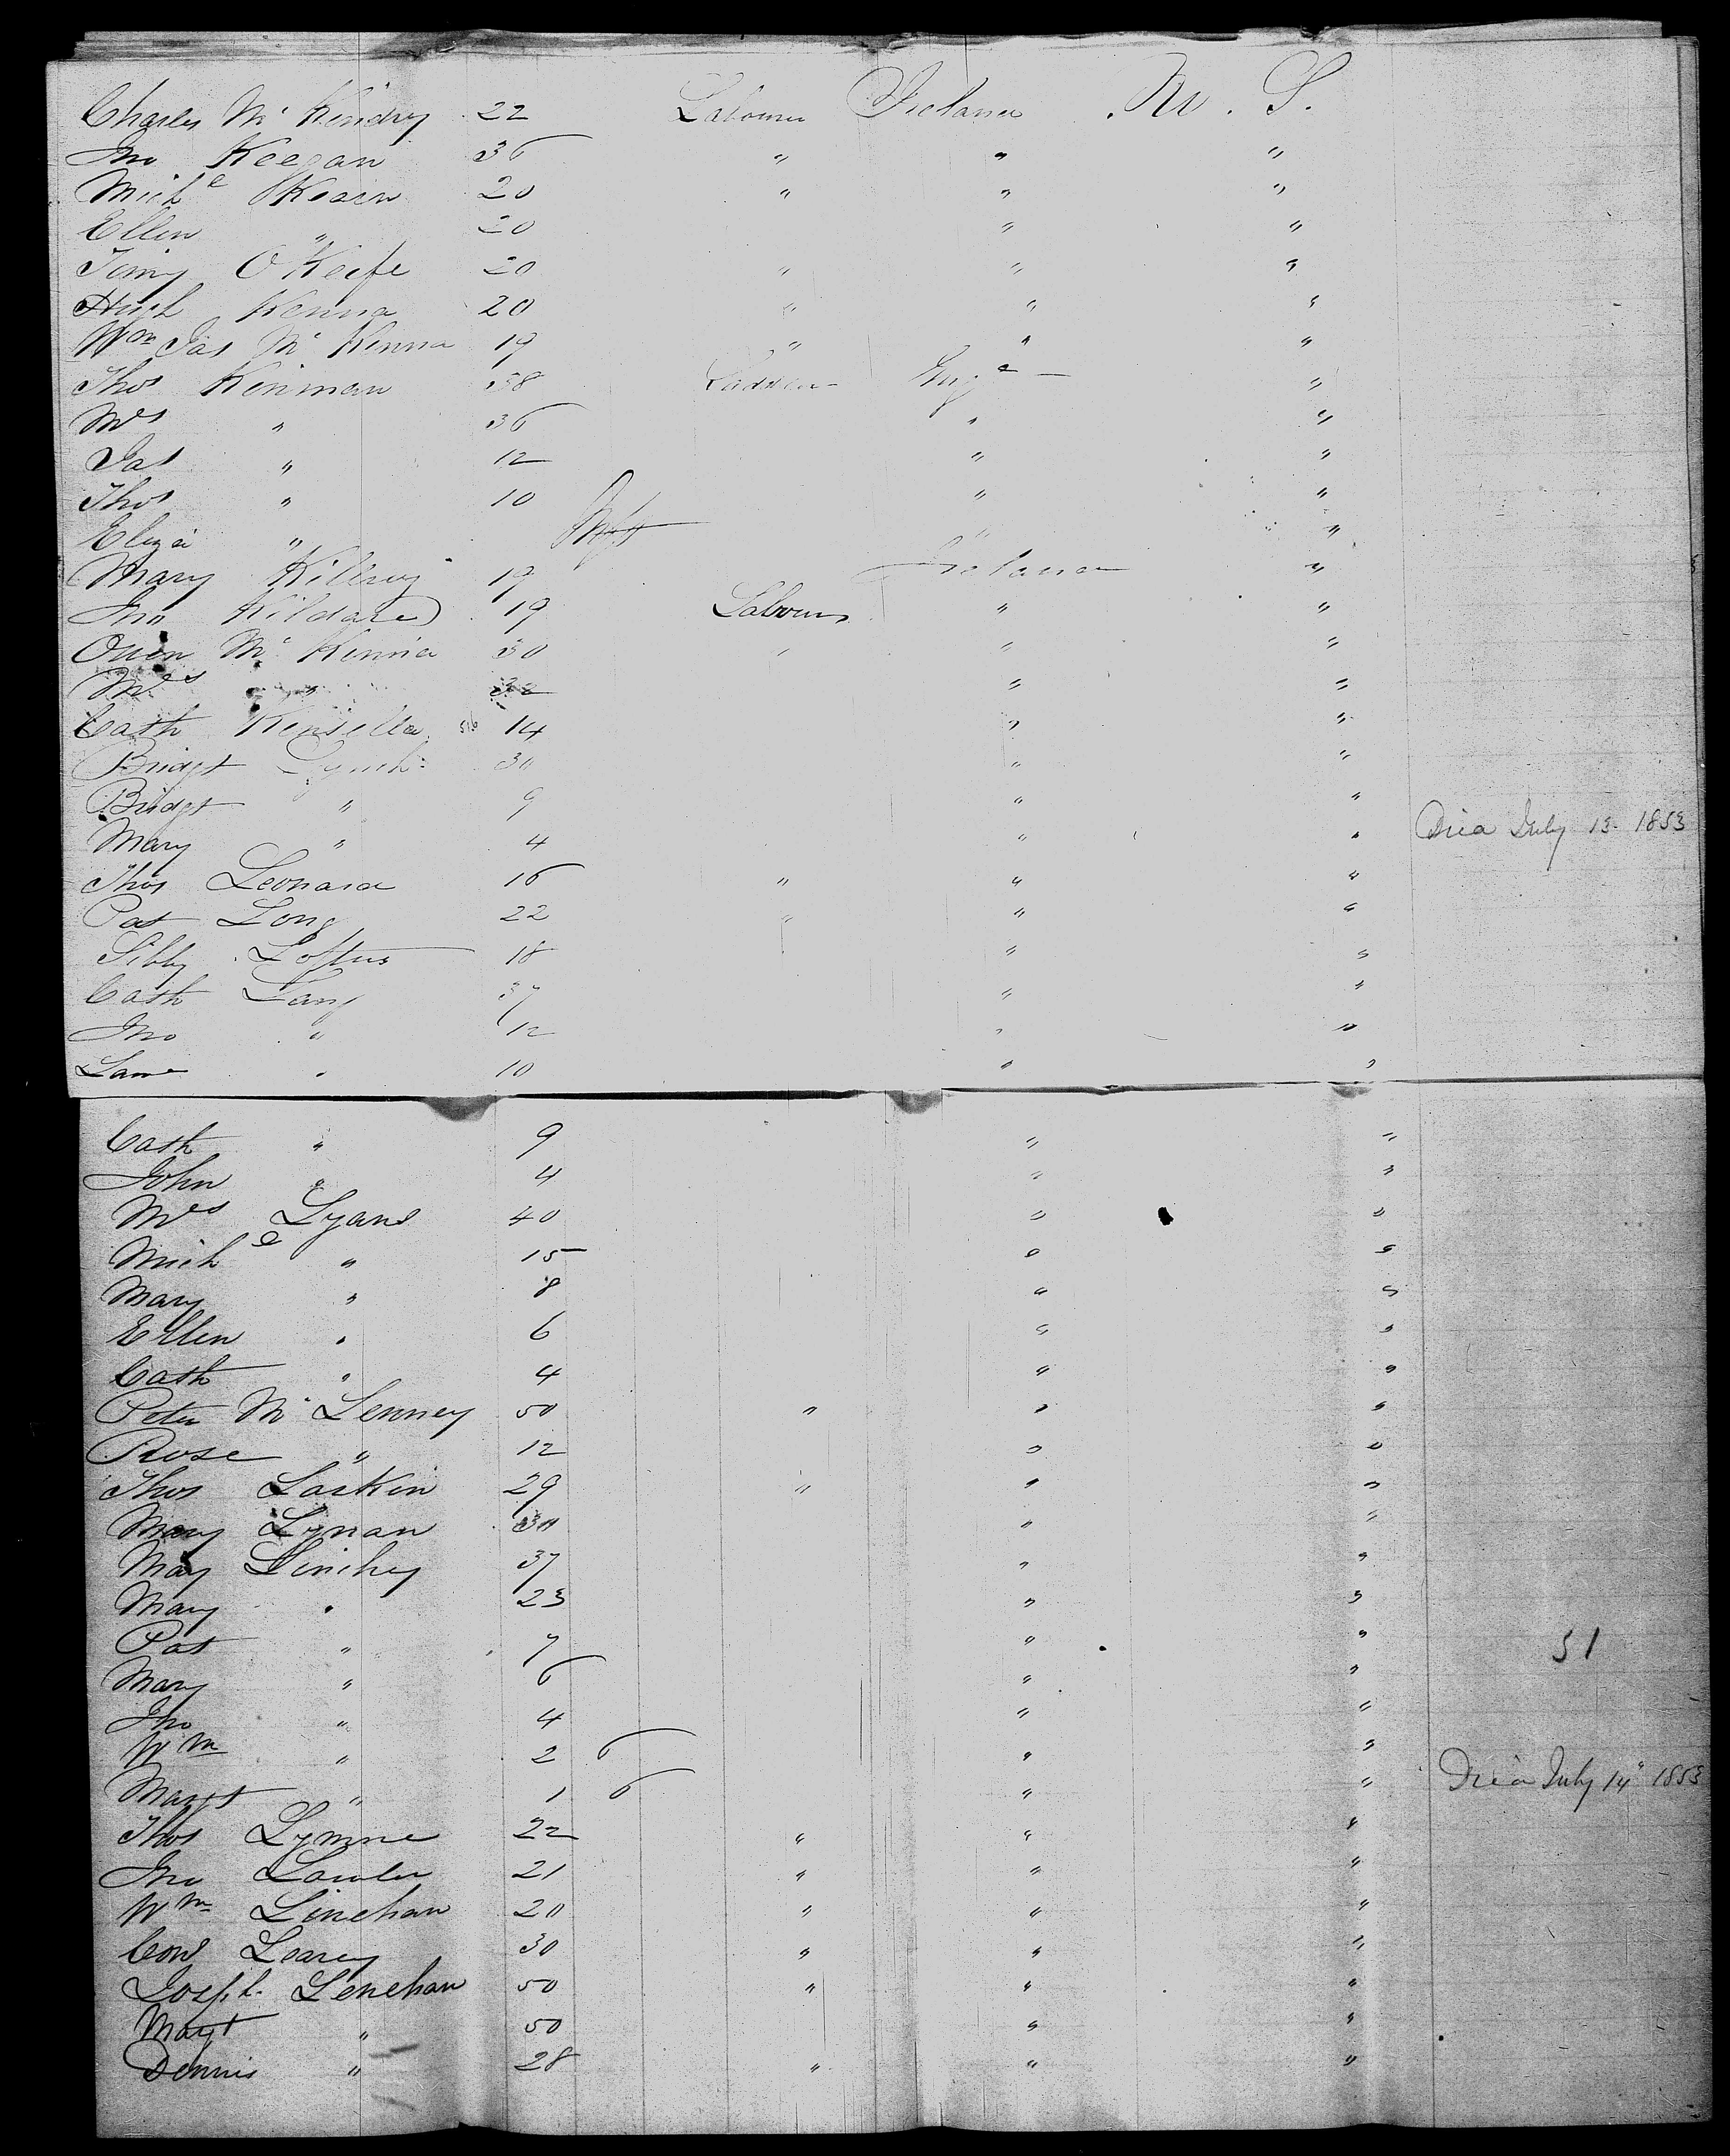 Charles Mc Kendry 22 Labourer Ireland . S.
Jno Keegan 36 " " "
Michl OKearn 20 " " "
Ellen " 20 " "
Timy O'Keefe 20 " " "
Hugh Kenna 20 " " "
Wm Jas Mc Kenna 19 " " "
Thos Kinman 38 Engd "
Mrs " 36 " "
Jas " 12 " "
Thos " 10 " "
Eliza " Inft " "
Mary Kilroy 19 Ireland "
Jno Kildare 19 Labourer " "
Owen Mc Kenna 30 " " "
Mrs " " 32 " "
Cath Kinsella 14 " "
Bridget Lynch 30 " "
Bridget " 9 " "
Mary " 4 " " Died July 13 1853
Thos Leonard 16 " " "
Pat Long 22 " " "
Sibby Loftus 18 " "
Cath Lang 37 " "
Jno " 12 " "
" 10 " "
Cath " 9 " "
John " 4 " "
Mrs Lyans 40 " "
Michl " 15 " "
Mary " 8 " "
Ellen " 6 " "
Cath " 4 " "
Peter Mc Lenney 50 " " "
Rose " 12 " "
Thos Larkin 29 " " "
Mary Lynan 30 " "
May Linchey 37 " "
Mary " 23 " "
Pat " 7 " " 51
Mary " 6 " "
Jno " 4 " "
Wm " 2 6 " "
Margt " 1 6 " " Died July 14" 1853
Thos Lymne 22 " " "
Jno Lawler 21 " " "
Wm Linehan 20 " " "
Cors Learey 30 " " "
Joseph Lenehan 50 " " "
Margt " 50 " "
Dennis " 28 " " "